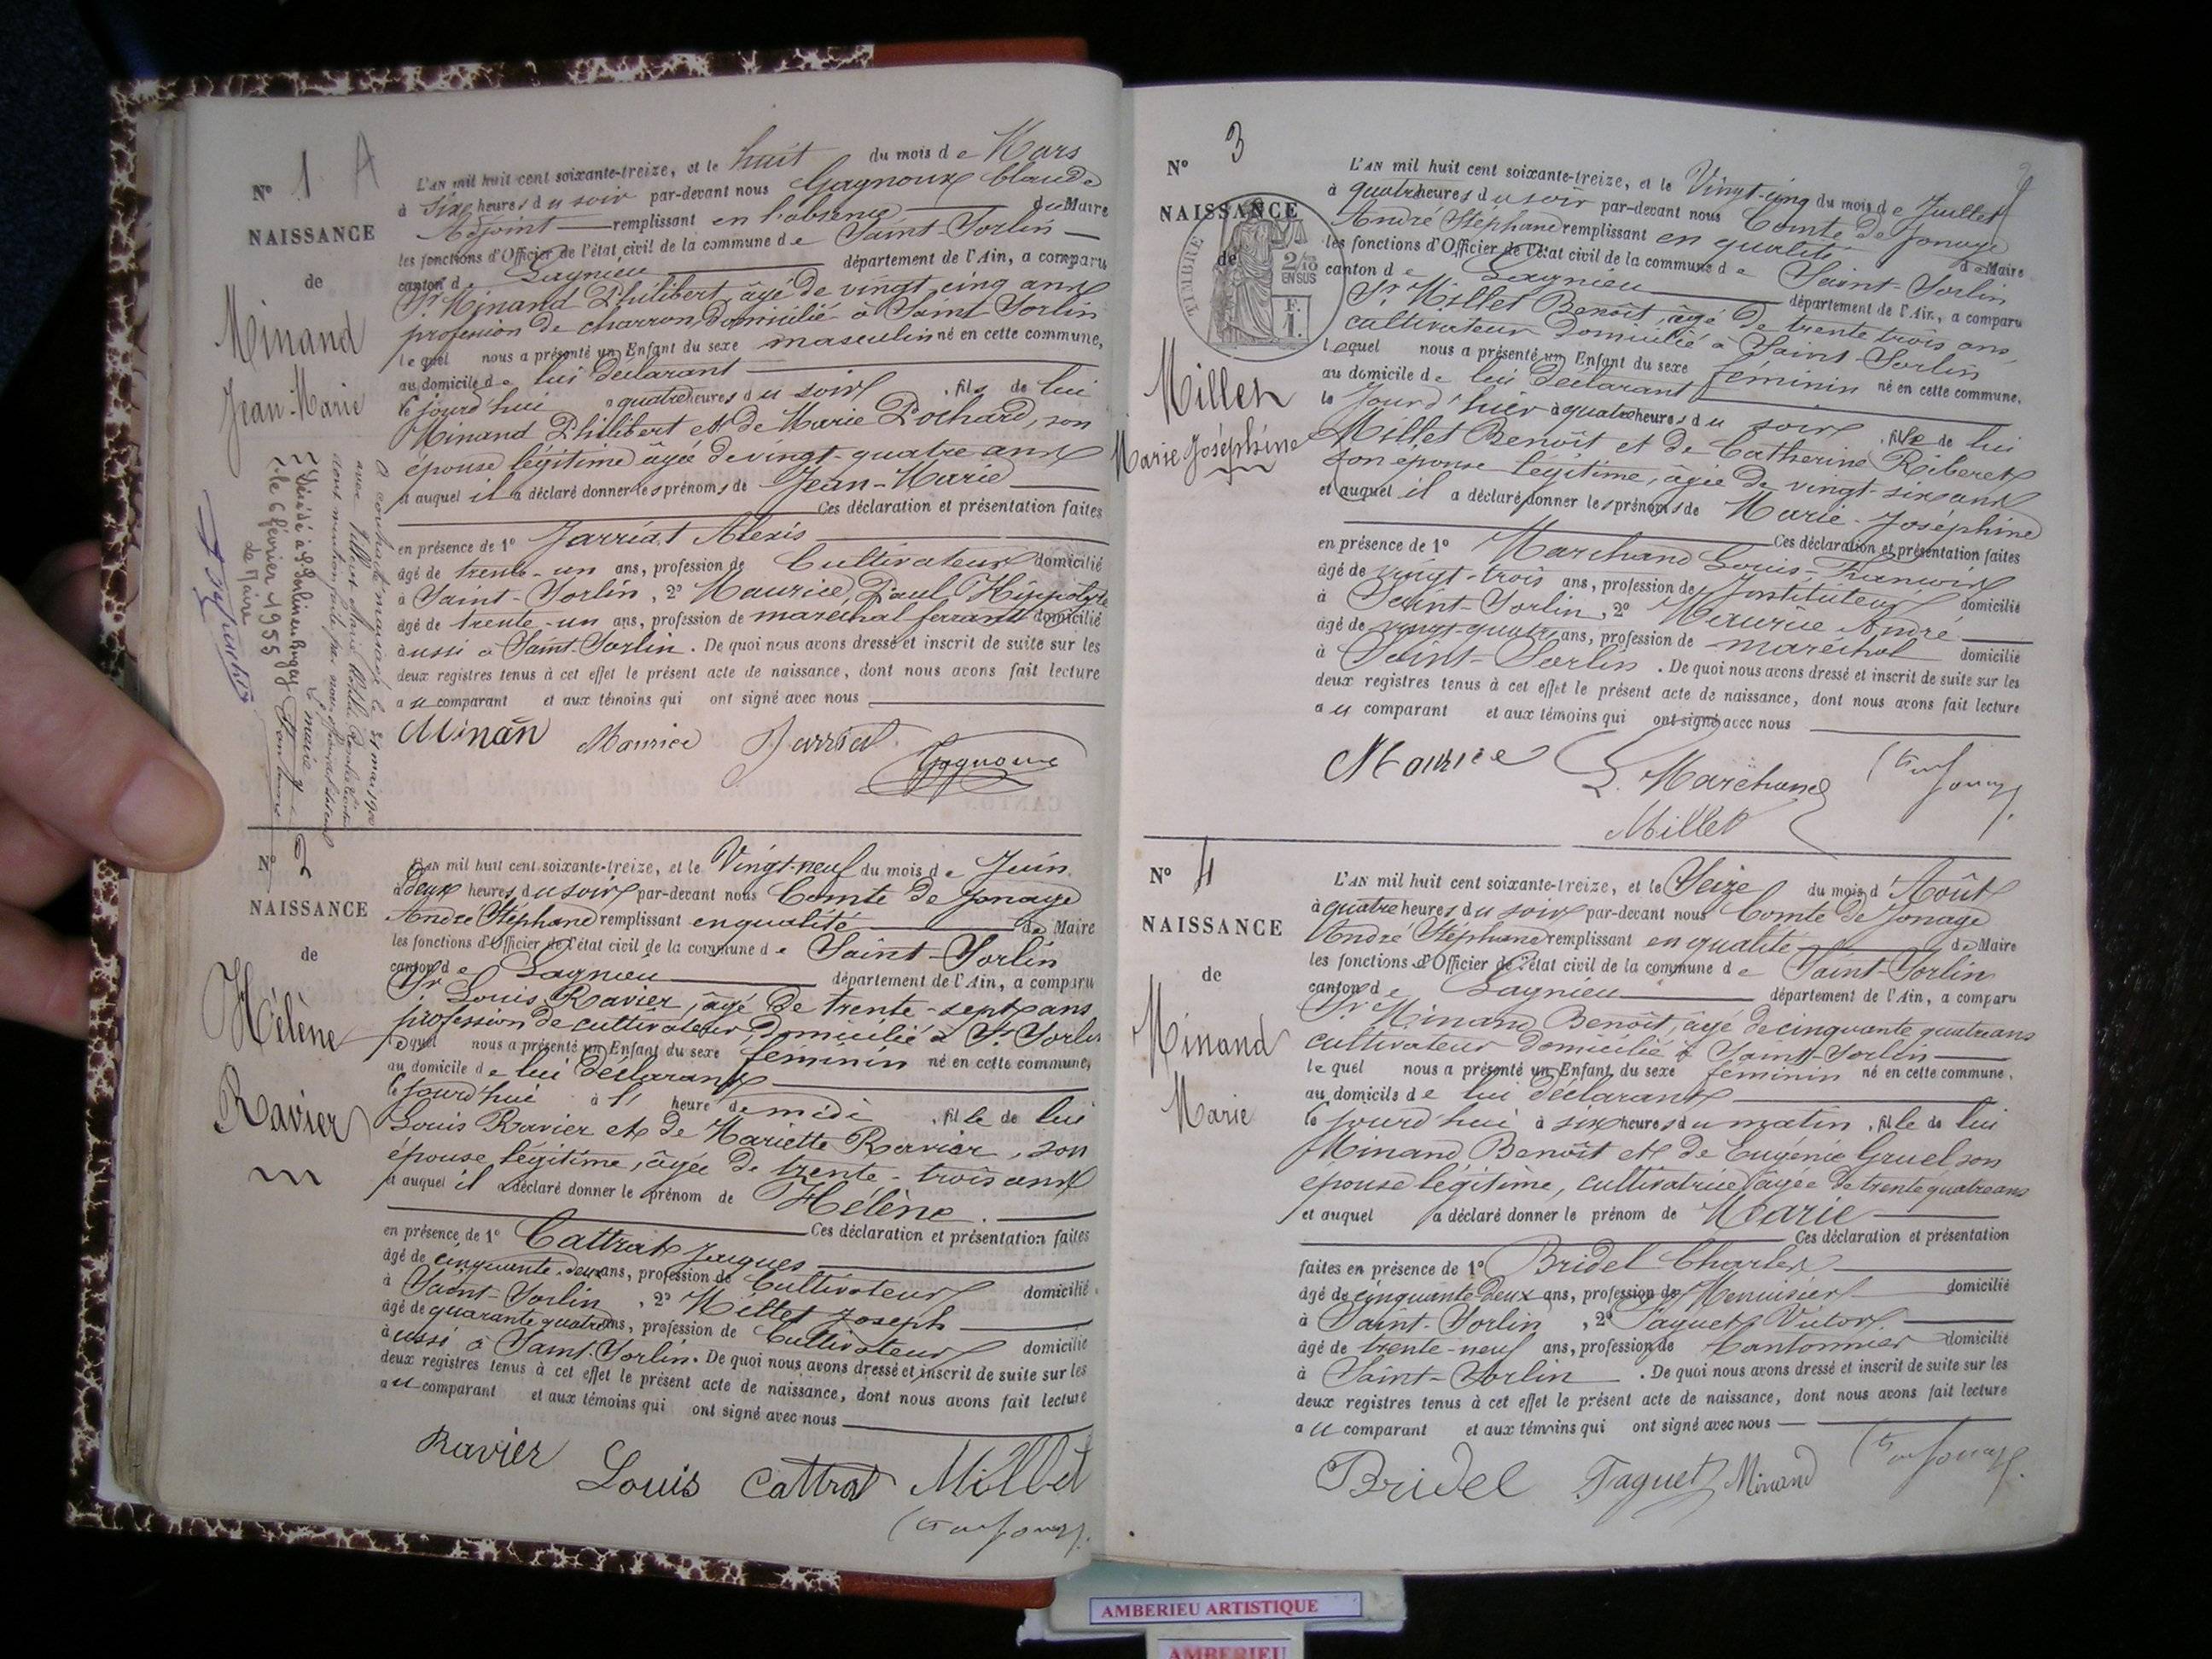 N° 1 A
NAISSANCE
de
Minand
Jean-Marie
L'AN mil huit cent soixante-treize, et le huit du mois de Mars
à six heures du soir par-devant nous Gagnoux Claude
Adjoint remplissant en l'absence du Maire
les fonctions d'Officier de l'état civil de la commune de Saint-Sorlin
canton de Lagnieu département de l'Ain, a comparu
Sr Minand Philibert âgé de vingt cinq ans
profession de charron, domicilié à Saint Sorlin
lequel nous a présenté un Enfant du sexe masculin né en cette commune,
au domicile de lui déclarant
le jourd'hui à quatre heures du soir, fils de lui
Minand Philibert et de Marie Pochard, son
épouse légitime âgée de vingt-quatre ans
et auquel il a déclaré donner les prénoms de Jean-Marie
Ces déclaration et présentation faites
en présence de 1° Jarriat Alexis
âgé de trente-un ans, profession de Cultivateur domicilié
à Saint-Sorlin, 2° Maurice, Paul, Hippolyte
âgé de trente-un ans, profession de maréchal ferrant domicilié
aussi à Saint-Sorlin. De quoi nous avons dressé et inscrit de suite sur les
deux registres tenus à cet effet le présent acte de naissance, dont nous avons fait lecture
au comparant et aux témoins qui ont signé avec nous
Minan Maurice Jarriat Gagnoux
A contracté mariage le 31 mai 1900
avec
dont mention faite par nous
Décédé à St Sorlin en Bugey
le 6 février 1955
Le Maire
N° 2
NAISSANCE
de
Hélène
Ravier
L'AN mil huit cent soixante-treize, et le Vingt-neuf du mois de Juin
à deux heures du soir par-devant nous Comte de Jonage
André Stéphane remplissant en qualité de Maire
les fonctions d'Officier de l'état civil de la commune de Saint-Sorlin
canton de Lagnieu département de l'Ain, a comparu
Sr Louis Ravier, âgé de trente-sept ans
profession de cultivateur, domicilié à St Sorlin
lequel nous a présenté un Enfant du sexe féminin né en cette commune,
au domicile de lui déclarant
le jourd'hui à l' heure de midi, fille de lui
Louis Ravier et de Mariette Ravier, son
épouse légitime, âgée de trente-trois ans
et auquel il a déclaré donner le prénom de Hélène.
Ces déclaration et présentation faites
en présence de 1° Cattrat Jacques
âgé de cinquante-deux ans, profession de Cultivateur domicilié
à Saint-Sorlin, 2° Millet Joseph
âgé de quarante quatre ans, profession de Cultivateur domicilié
aussi à Saint-Sorlin. De quoi nous avons dressé et inscrit de suite sur les
deux registres tenus à cet effet le présent acte de naissance, dont nous avons fait lecture
au comparant et aux témoins qui ont signé avec nous
Ravier Louis Cattrat Millet
N° 3
NAISSANCE
de
TIMBRE
2/10
EN SUS
F.
1.
Millet
Marie Joséphine
L'AN mil huit cent soixante-treize, et le Vingt-cinq du mois de Juillet
à quatre heures du soir par-devant nous Comte de Jonage
André Stéphane remplissant en qualité de Maire
les fonctions d'Officier de l'état civil de la commune de Saint-Sorlin
canton de Lagnieu département de l'Ain, a comparu
Sr Millet Benoît, âgé de trente trois ans,
cultivateur domicilié à Saint-Sorlin
lequel nous a présenté un Enfant du sexe féminin né en cette commune,
au domicile de lui déclarant
le Jourd'hier à quatre heures du soir, fille de lui
Millet Benoît et de Catherine Riberet
son épouse légitime, âgée de vingt-six ans
et auquel il a déclaré donner les prénoms de Marie-Joséphine
Ces déclaration et présentation faites
en présence de 1° Marchand Louis-François
âgé de vingt-trois ans, profession de Instituteur domicilié
à Saint-Sorlin, 2° Maurice André
âgé de vingt-quatre ans, profession de maréchal domicilié
à Saint-Sorlin. De quoi nous avons dressé et inscrit de suite sur les
deux registres tenus à cet effet le présent acte de naissance, dont nous avons fait lecture
au comparant et aux témoins qui ont signé avec nous
Maurice L. Marchand
Millet
N° 4
NAISSANCE
de
Minand
Marie
L'AN mil huit cent soixante-treize, et le Seize du mois d'Août
à quatre heures du soir par-devant nous Comte de Jonage
André Stéphane remplissant en qualité de Maire
les fonctions d'Officier de l'état civil de la commune de Saint-Sorlin
canton de Lagnieu département de l'Ain, a comparu
Sr Minand Benoît, âgé de cinquante quatre ans
cultivateur domicilié à Saint-Sorlin
lequel nous a présenté un Enfant du sexe féminin né en cette commune,
au domicile de lui déclarant
le jourd'hui à six heures du matin, fille de lui
Minand Benoît et de Eugénie Gruel son
épouse légitime, cultivatrice âgée de trente quatre ans
et auquel a déclaré donner le prénom de Marie
Ces déclaration et présentation
faites en présence de 1° Bridel Charles
âgé de cinquante deux ans, profession de Menuisier domicilié
à Saint-Sorlin, 2° Paquet Victor
âgé de trente-neuf ans, profession de Cantonnier domicilié
à Saint-Sorlin. De quoi nous avons dressé et inscrit de suite sur les
deux registres tenus à cet effet le présent acte de naissance, dont nous avons fait lecture
au comparant et aux témoins qui ont signé avec nous
Bridel Paquet Minand
AMBERIEU ARTISTIQUE
AMBERIEU